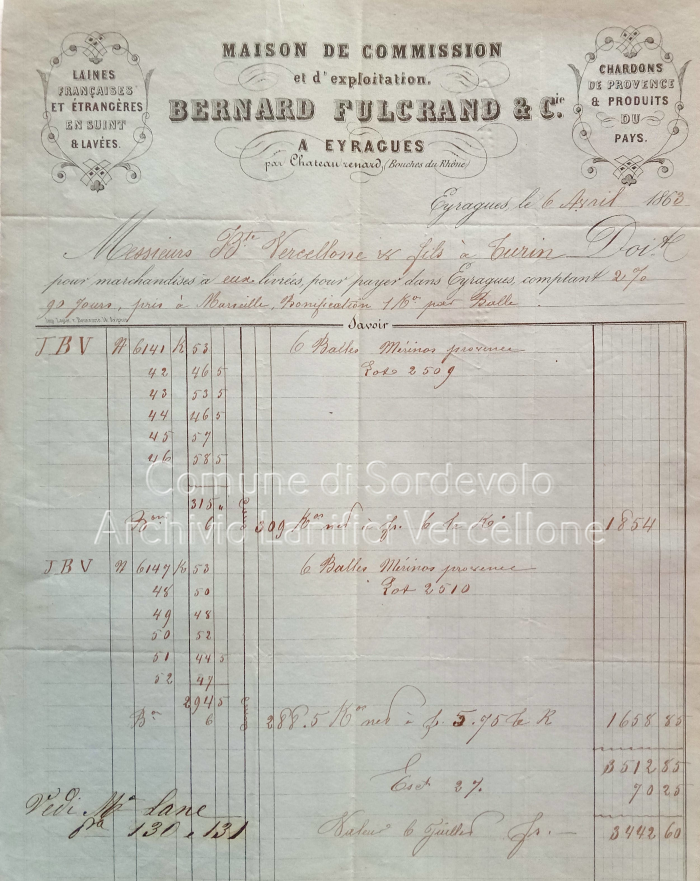 LAINES
FRANÇAISES
ET ÉTRANGÈRES
EN SUINT
& LAVÉES.
MAISON DE COMMISSION
et d'exploitation.
BERNARD FULCRAND & Cie.
A EYRAGUES
par Chateaurenard, (Bouches du Rhône)
CHARDONS
DE PROVENCE
& PRODUITS
DU
PAYS.
Eyragues le 6 Avril 1863
Messieurs Bte Vercellone & fils à Turin Doit
pour marchandises à eux livrées, pour payer dans Eyragues, comptant 2%
90 jours, pris à Marseille, Bonification 1 Ko par Balle
Savoir
JBV N 6141 K 53 6 Balles Mérinos provence
42 46 5 Lot 2509
43 53 5
44 46 5
45 57
46 58 5
315 "
Bon 6 309 Kos net à fr. 6 le Ko 1854
JBV N 6147 K 53 6 Balles Mérinos provence
48 50 Lot 2510
49 48
50 52
51 44 5
52 47
294 5
Bon 6 288.5 Kos net à fr 5.75 le K 1658 85
3512 85
Esct 2% 70 25
Valeur 6 Juillet fr. 3442 60
Vedi Mo Lane
130 e 131
Comune di Sordevolo
Archivio Lanifici Vercellone